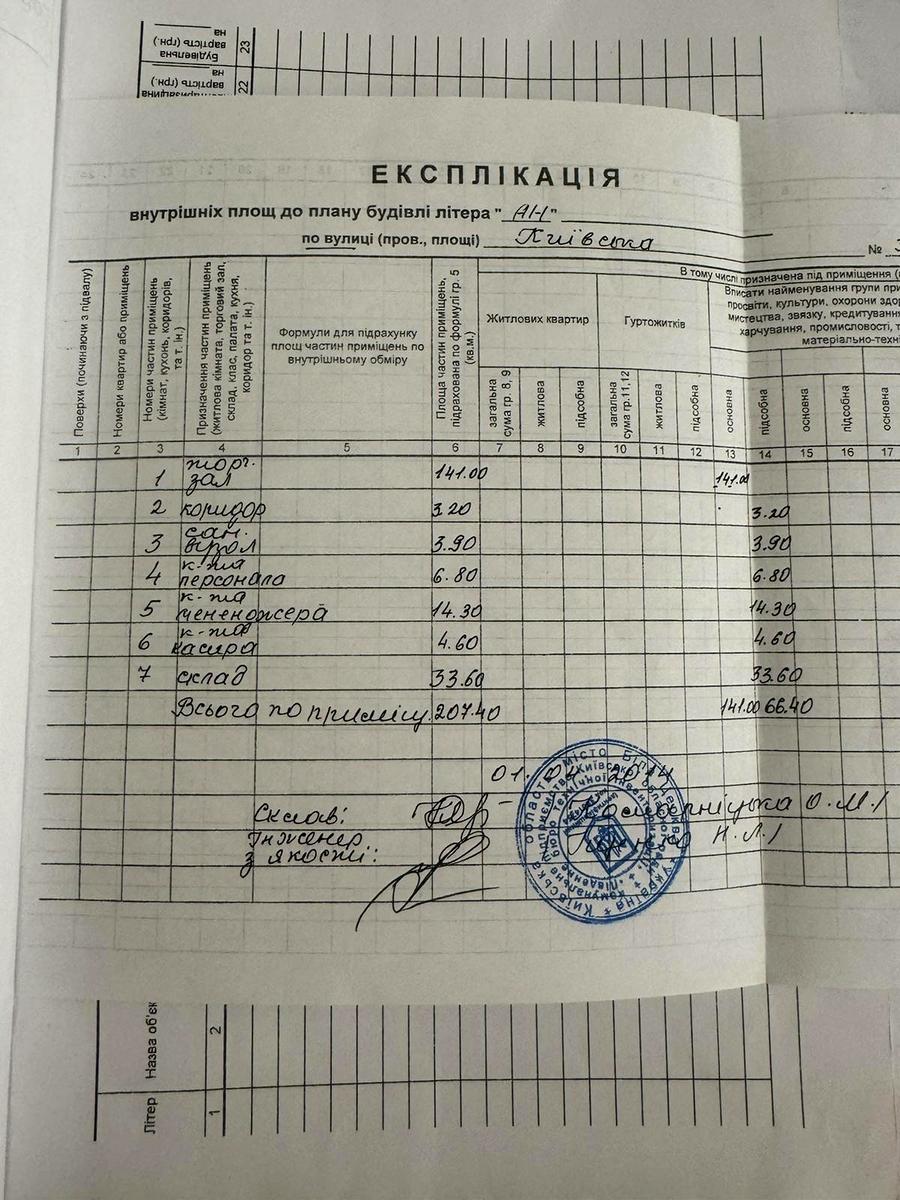 на
вартість (грн.)
Будівельна
23
на
вартість (грн.)
22
ЕКСПЛІКАЦІЯ
внутрішніх площ до плану будівлі літера " АН "
по вулиці (пров., площі) Київська
№
Поверхи (починаючи з підвалу)
Номери квартир або приміщень
Номери частин приміщень (кімнат, кухонь, коридорів, та т. ін.)
Призначення частин приміщень (житлова кімната, торговий зал, склад, клас, палата, кухня, коридор та т. ін.)
Формули для підрахунку площ частин приміщень по внутрішньому обміру
Площа частин приміщень, підрахована по формулі гр. 5 (кв.м.)
В тому числі призначена під приміщення
Житлових квартир
Гуртожитків
Вписати найменування групи
просвіти, культури, охорони
мистецтва, звязку, кредитування
харчування, промисловості,
загальна сума гр. 8, 9
житлова
підсобна
загальна сума гр.11,12
житлова
підсобна
основна
підсобна
основна
підсобна
основна
1 2 3 4 5 6 7 8 9 10 11 12 13 14 15 16 17
1 торг. зал 141.00 141.00
2 коридор 3.20 3.20
3 сан. вузол 3.90 3.90
4 к-та персонала 6.80 6.80
5 к-та 14.30 14.30
6 к-та касира 4.60 4.60
7 склад 33.60 33.60
Всього по приміщ. 207.40 141.00 66.40
Склав:
О.М./
Інженер
з якости:
Н.Л./
Літер
Назва об'єк
1
2